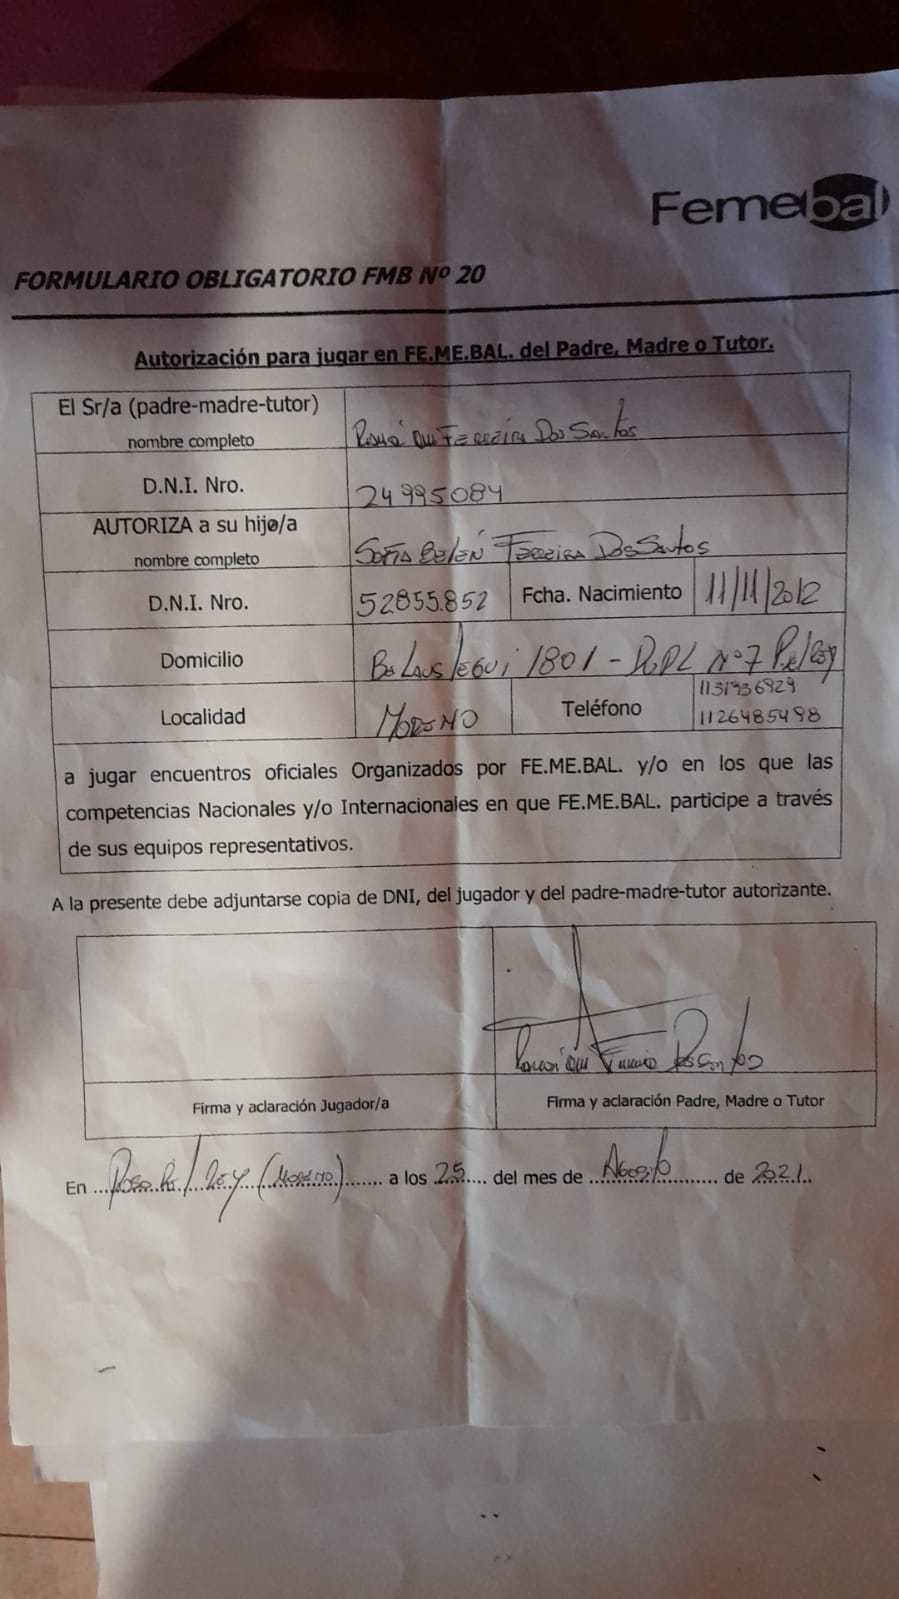 Femebal
FORMULARIO OBLIGATORIO FMB Nº 20
Autorización para jugar en FE.ME.BAL. del Padre, Madre o Tutor.
El Sr/a (padre-madre-tutor)
nombre completo
Ferreira Dos Santos
D.N.I. Nro.
24995084
AUTORIZA a su hijo/a
nombre completo
Sofia Belén Ferreira Dos Santos
D.N.I. Nro.
52855.852
Fcha. Nacimiento
11/11/2012
Domicilio
1801 - Nº7
Localidad
Moreno
Teléfono
1131936929
1126485498
a jugar encuentros oficiales Organizados por FE.ME.BAL. y/o en los que las
competencias Nacionales y/o Internacionales en que FE.ME.BAL. participe a través
de sus equipos representativos.
A la presente debe adjuntarse copia de DNI, del jugador y del padre-madre-tutor autorizante.
Firma y aclaración Jugador/a
Firma y aclaración Padre, Madre o Tutor
En ... (Moreno) ....... a los 25.... del mes de ..Agosto.......... de 2021..